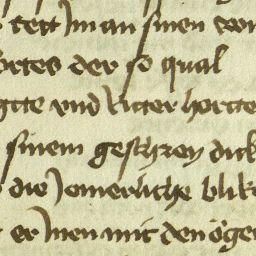 tett Im an sinen wor
ortes der so qual
gtte vnd kitter hortte
sinem geschrey dick
die Jomerliche blik
er Inen mit den ögen